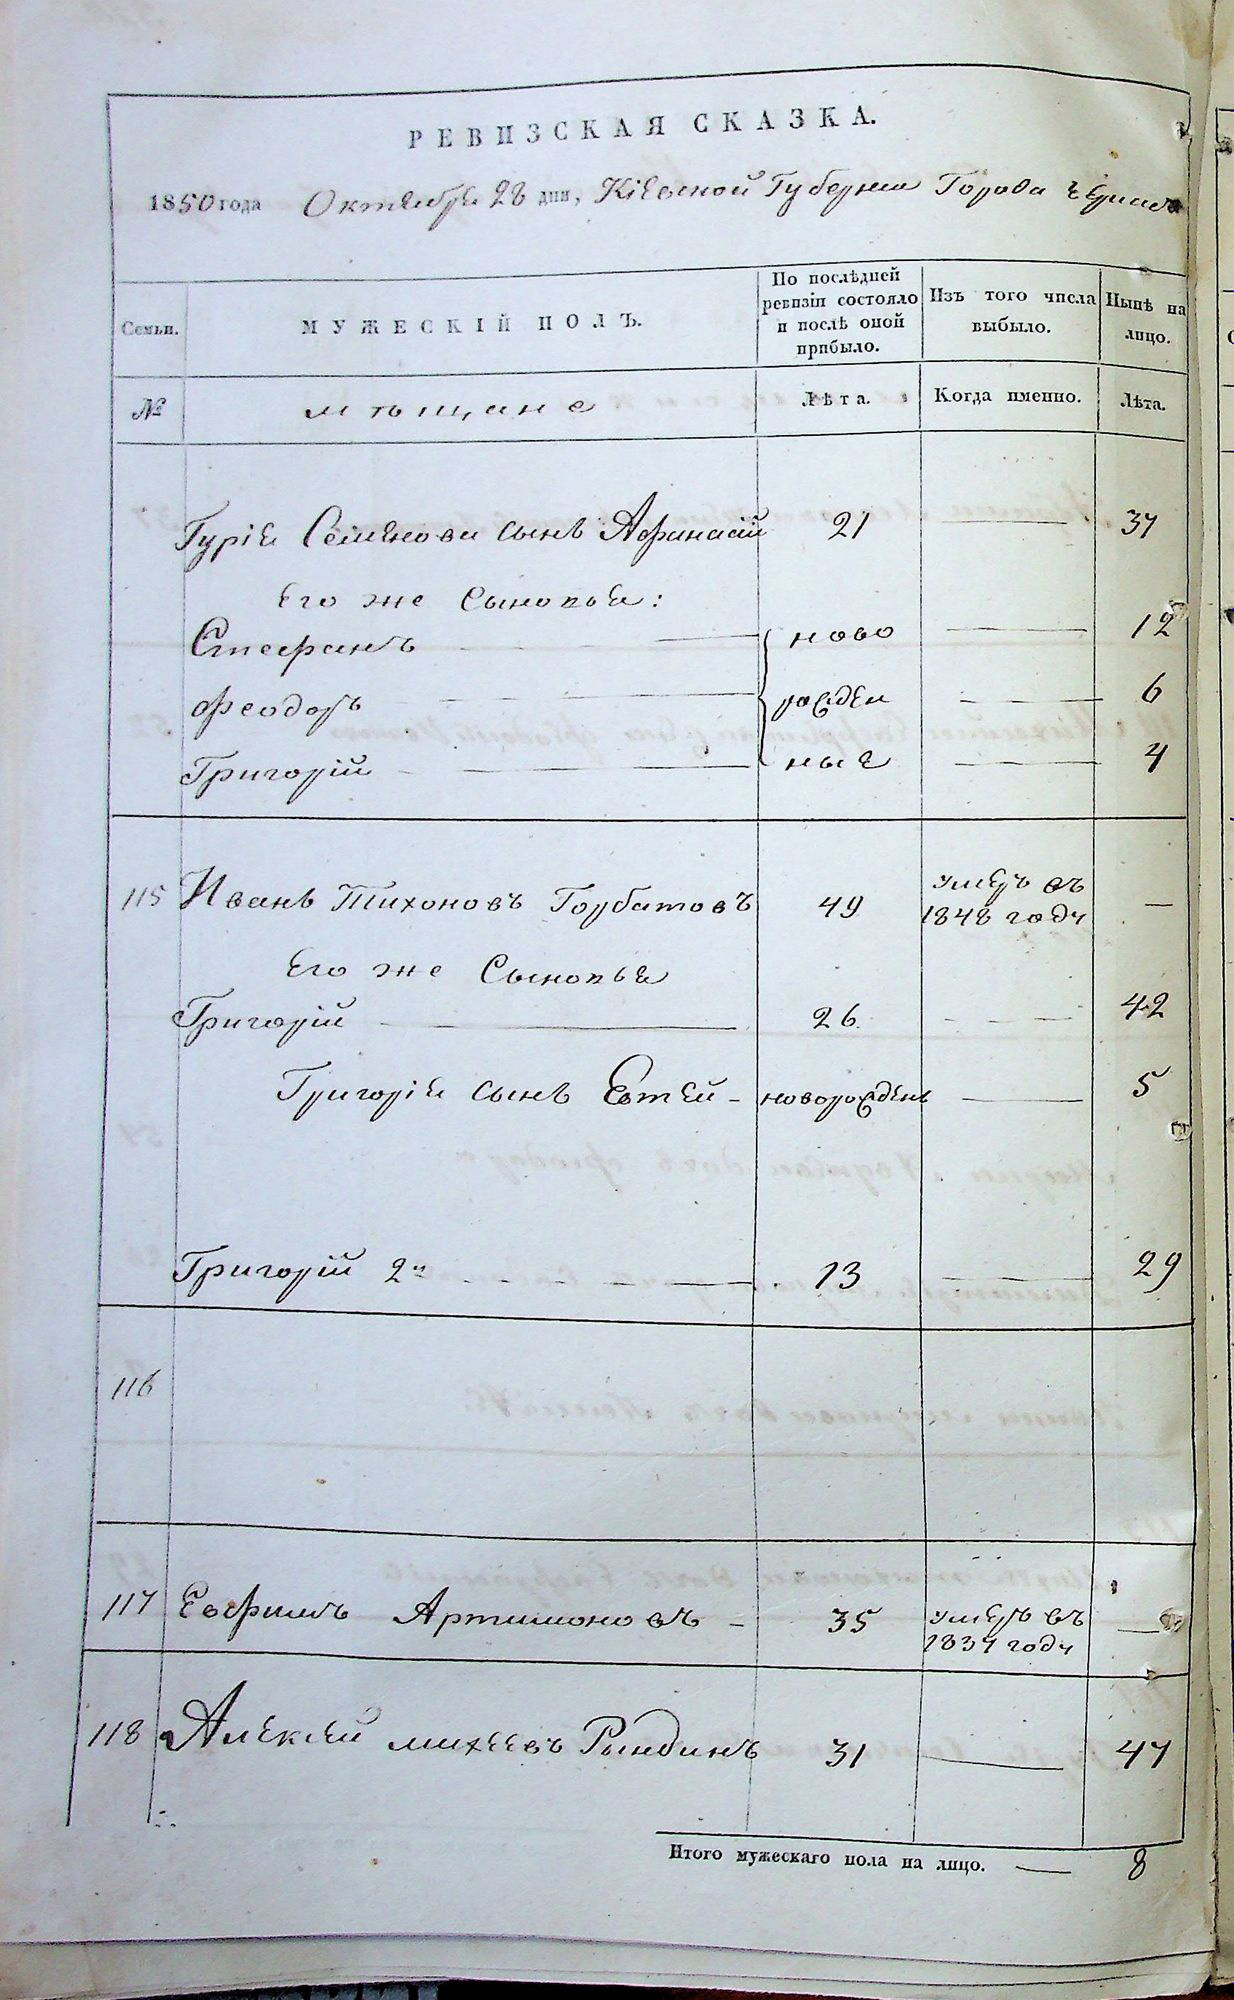 РЕВИЗСКАЯ СКАЗКА.
1850 года Октября 28 дни, Кіевской Губерніи Города
Семьи. МУЖЕСКІЙ ПОЛЪ. По послѣдней ревизіи состояло и послѣ оной прибыло. Изъ того числа выбыло. Нынѣ на лицо.
№ мѣщане Лѣта. Когда именно. Лѣта.
Гурія Семенова сынъ Афанасій 21 — 37
Его же Сыновья:
Стефанъ — ново — 12
Феодоръ — рожден — 6
Григорій — ные — 4
115 Иванъ Тихоновъ Горбатовъ 49 умеръ въ 1848 году —
Его же Сыновья
Григорій — 26 — 42
Григорія сынъ Евтей - новорожденъ — 5
Григорій 2й — 13 — 29
116
117 Ефимъ Артимоновъ - 35 умеръ въ 1837 году —
118 Алексей михеевъ Рындинъ 31 — 47
Итого мужескаго пола на лицо. — 8